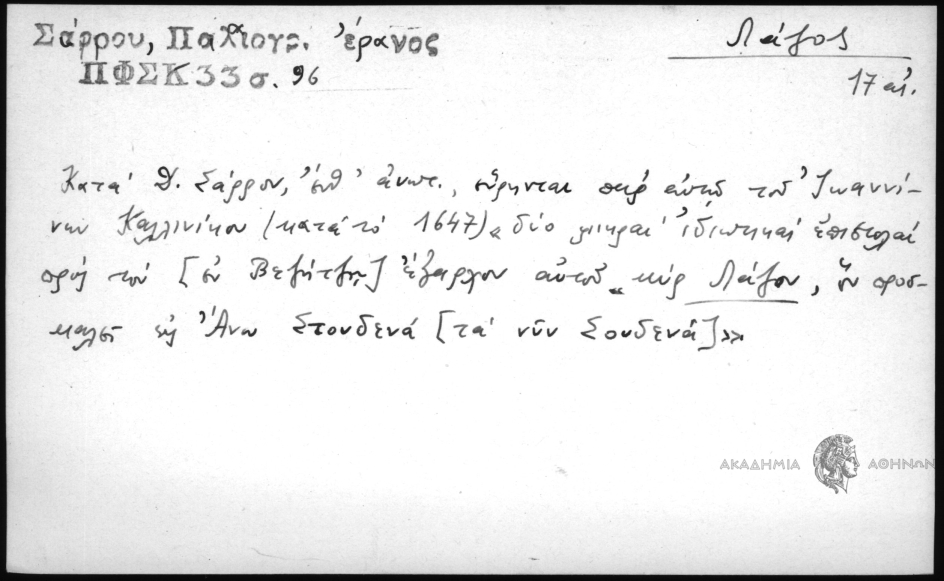 Σάρρου, Παλιογρ. ἐρανος
Λάζος
ΠΦΣΚ 33 σ. 96
17 αἰ.
Κατὰ Δ. Σάρρον, ἔνθ' ἀνωτ., εὕρηνται παρ' αὐτῷ τοῦ Ἰωαννί-
νων Καλλινίκου (κατὰ τὸ 1647) « δύο μικραὶ ἰδιωτικαὶ ἐπιστολαὶ
πρὸς τὸν [ἐν Βεζήτζῃ] ἔξαρχον αὐτοῦ « κὺρ Λάζον, ὃν προσ-
καλεῖ εἰς Ἄνω Στουδενά [τὰ νῦν Σουδενά]»
ΑΚΑΔΗΜΙΑ ΑΘΗΝΩΝ